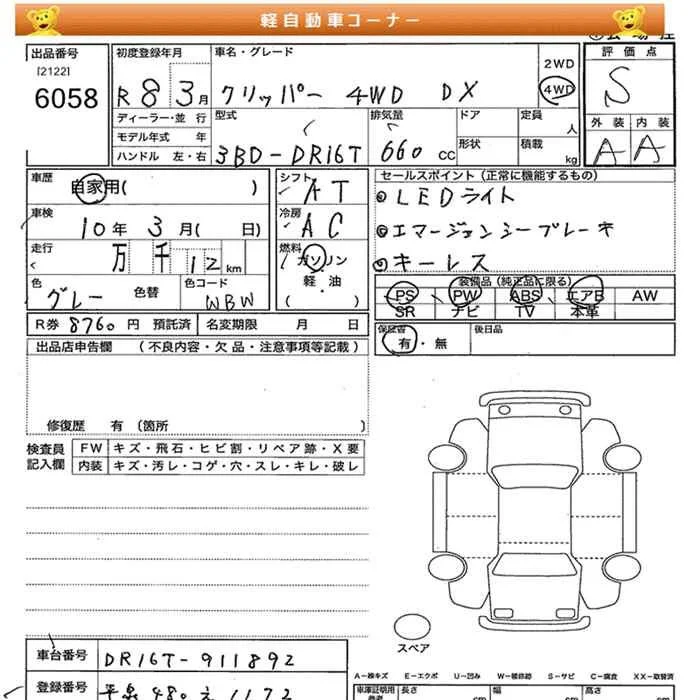 軽自動車コーナー
出品番号
[2122]
6058
初度登録年月
R 8 3月
ディーラー・並 行
モデル年式 年
ハンドル 左・右
車名・グレード
クリッパー 4WD DX
2WD
4WD
評 価 点
S
外 装 内 装
A A
型式
3BD-DR16T
排気量
660 CC
ドア
形状
定員
人
積載
kg
車歴
自家用( )
車検
10年 3月( 日)
走行
万 千 12 km
色
グレー
色替
色コード
WBW
シフト
AT
冷房
AC
燃料
ガソリン
軽・油
( )
セールスポイント (正常に機能するもの)
LEDライト
エマージェンシーブレーキ
キーレス
装備品 (純正品に限る)
PS PW ABS エアB AW
SR ナビ TV 本革
R券 8760 円 預託済 名変期限 月 日
保証書
有・無
後日品
出品店申告欄 (不良内容・欠品・注意事項等記載)
修復歴 有 (箇所 )
検査員
記入欄
FW キズ・飛石・ヒビ割・リペア跡・X要
内装 キズ・汚レ・コゲ・穴・スレ・キレ・破レ
スペア
車台番号 DR16T-911892
A-線キズ E-エクボ U-凹み W-補修跡 S-サビ C-腐食 XX-取替済
登録番号
車庫証明用
参考
長さ cm 幅 cm 高さ cm